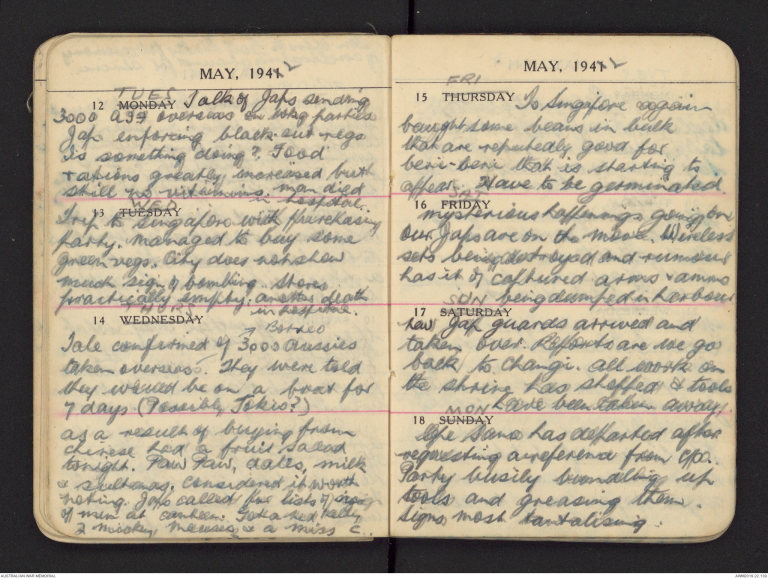 MAY, 1941 2
TUES
12 MONDAY Talk of Japs sending
3000 overseas in working parties
Jap enforcing black-out regs
Is something doing? Food
rations greatly increased but
still no vitamins, man died
in hospital.
WED
13 TUESDAY
Trip to Singapore with purchasing
party. Managed to buy some
green vegs. City does not show
much sign of bombing. Stores
practically empty. another death
in hospital.
THUR
14 WEDNESDAY
Borneo
Tale confirmed of 3000 Aussies
taken overseas. They were told
they would be on a boat for
7 days (Possibly Tokio?)
as a result of buying from
chinese had a fruit salad
tonight. Paw Paw, dates, milk
& sultanas. Considered it worth
noting. Japs called for lists of
of men at canteen. Ned Kelly,
2 mickey mouses & a miss C.
MAY, 1941 2
FRI
15 THURSDAY To Singapore again
bought some beans in bulk
that are reputedly good for
beri-beri that is starting to
appear. Have to be germinated.
SAT
16 FRIDAY
mysterious happenings going on
our Japs are on the move. Wireless
sets being destroyed and rumour
has it of captured arms & ammo
being dumped in harbour
SUN
17 SATURDAY
new Jap guards arrived and
taken over. Reports are we go
back to changi. all work on
the shrine has stopped & tools
have been taken away.
MON
18 SUNDAY
has departed after
requesting a reference from c/o.
Party busily bundling up
tools and greasing them.
Signs most tantalising.
AUSTRALIAN WAR MEMORIAL